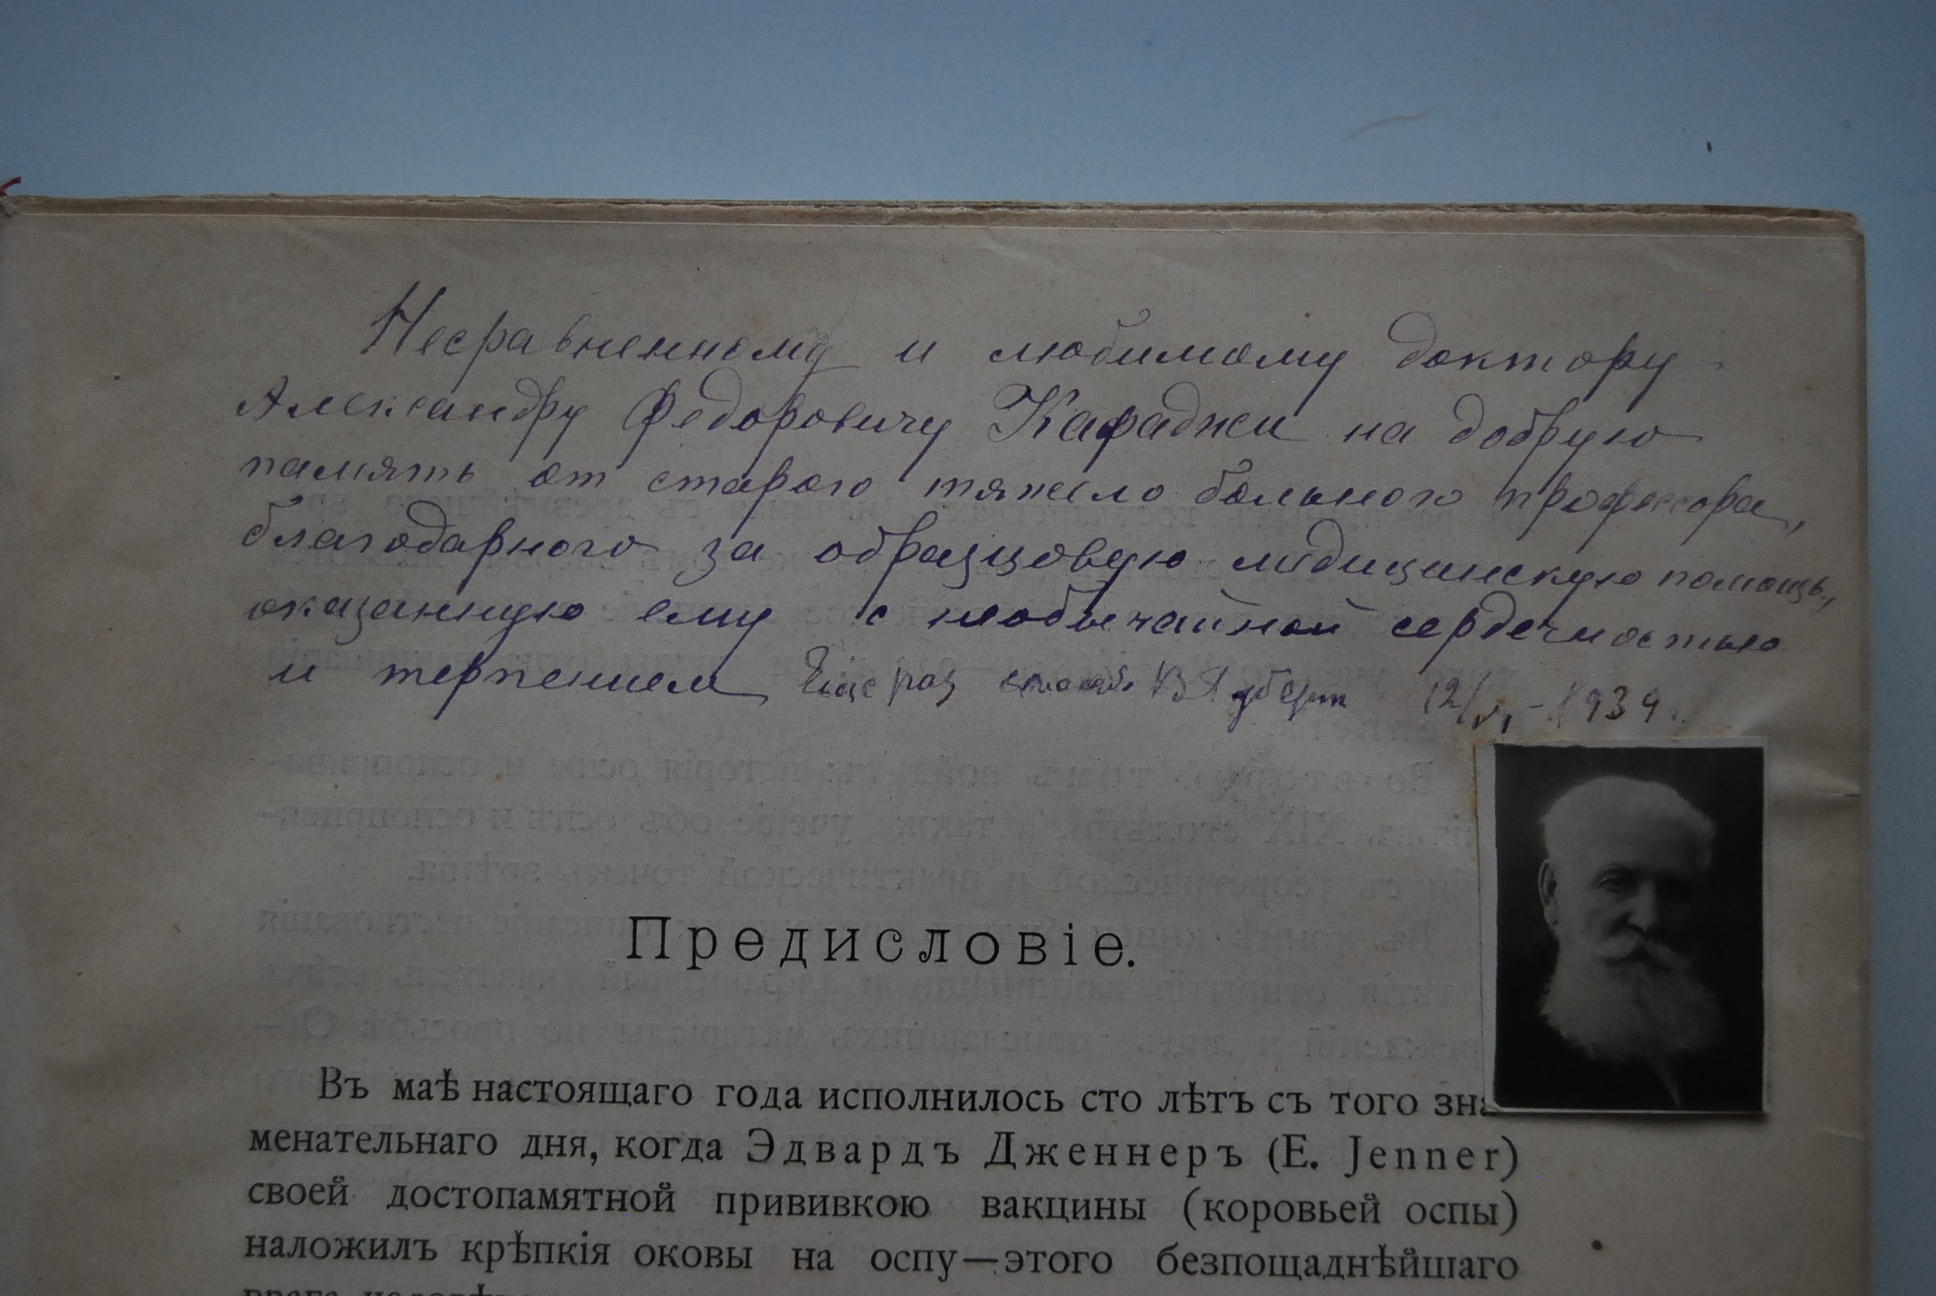 Несравненному и любимому доктору
Александру Федоровичу Караджи на добрую
память от старого тяжело больного профессора,
благодарного за образцовую медицинскую помощь,
оказанную ему с необычайной сердечностью
и терпением Еще раз спасибо В Губерт 12/VI - 1939 г.
Предисловіе.
Въ маѣ настоящаго года исполнилось сто лѣтъ съ того зна
менательнаго дня, когда Эдвардъ Дженнеръ (E. Jenner)
своей достопамятной прививкою вакцины (коровьей оспы)
наложилъ крѣпкія оковы на оспу—этого безпощаднѣйшаго